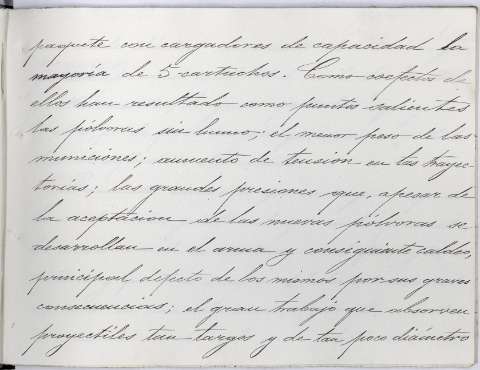 paquete con cargadores de capacidad la
mayoría de 5 cartuchos. Como coefectos de
ellos han resultado como puntos salientes
las pólvoras sin humo; el menor peso de las
municiones; aumento de tensión en las trayec-
torias; las grandes presiones que, apesar de
la aceptación de las nuevas pólvoras se
desarrollan en el arma y consiguiente caldeo,
principal defecto de los mismos por sus graves
consecuencias; el gran trabajo que absorven
proyectiles tan largos y de tan poco diámetro